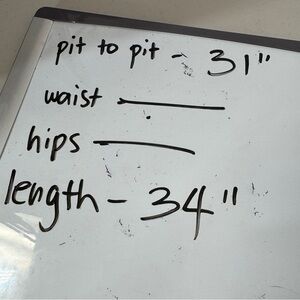 pit to pit - 31"
waist ———
hips ———
length - 34"